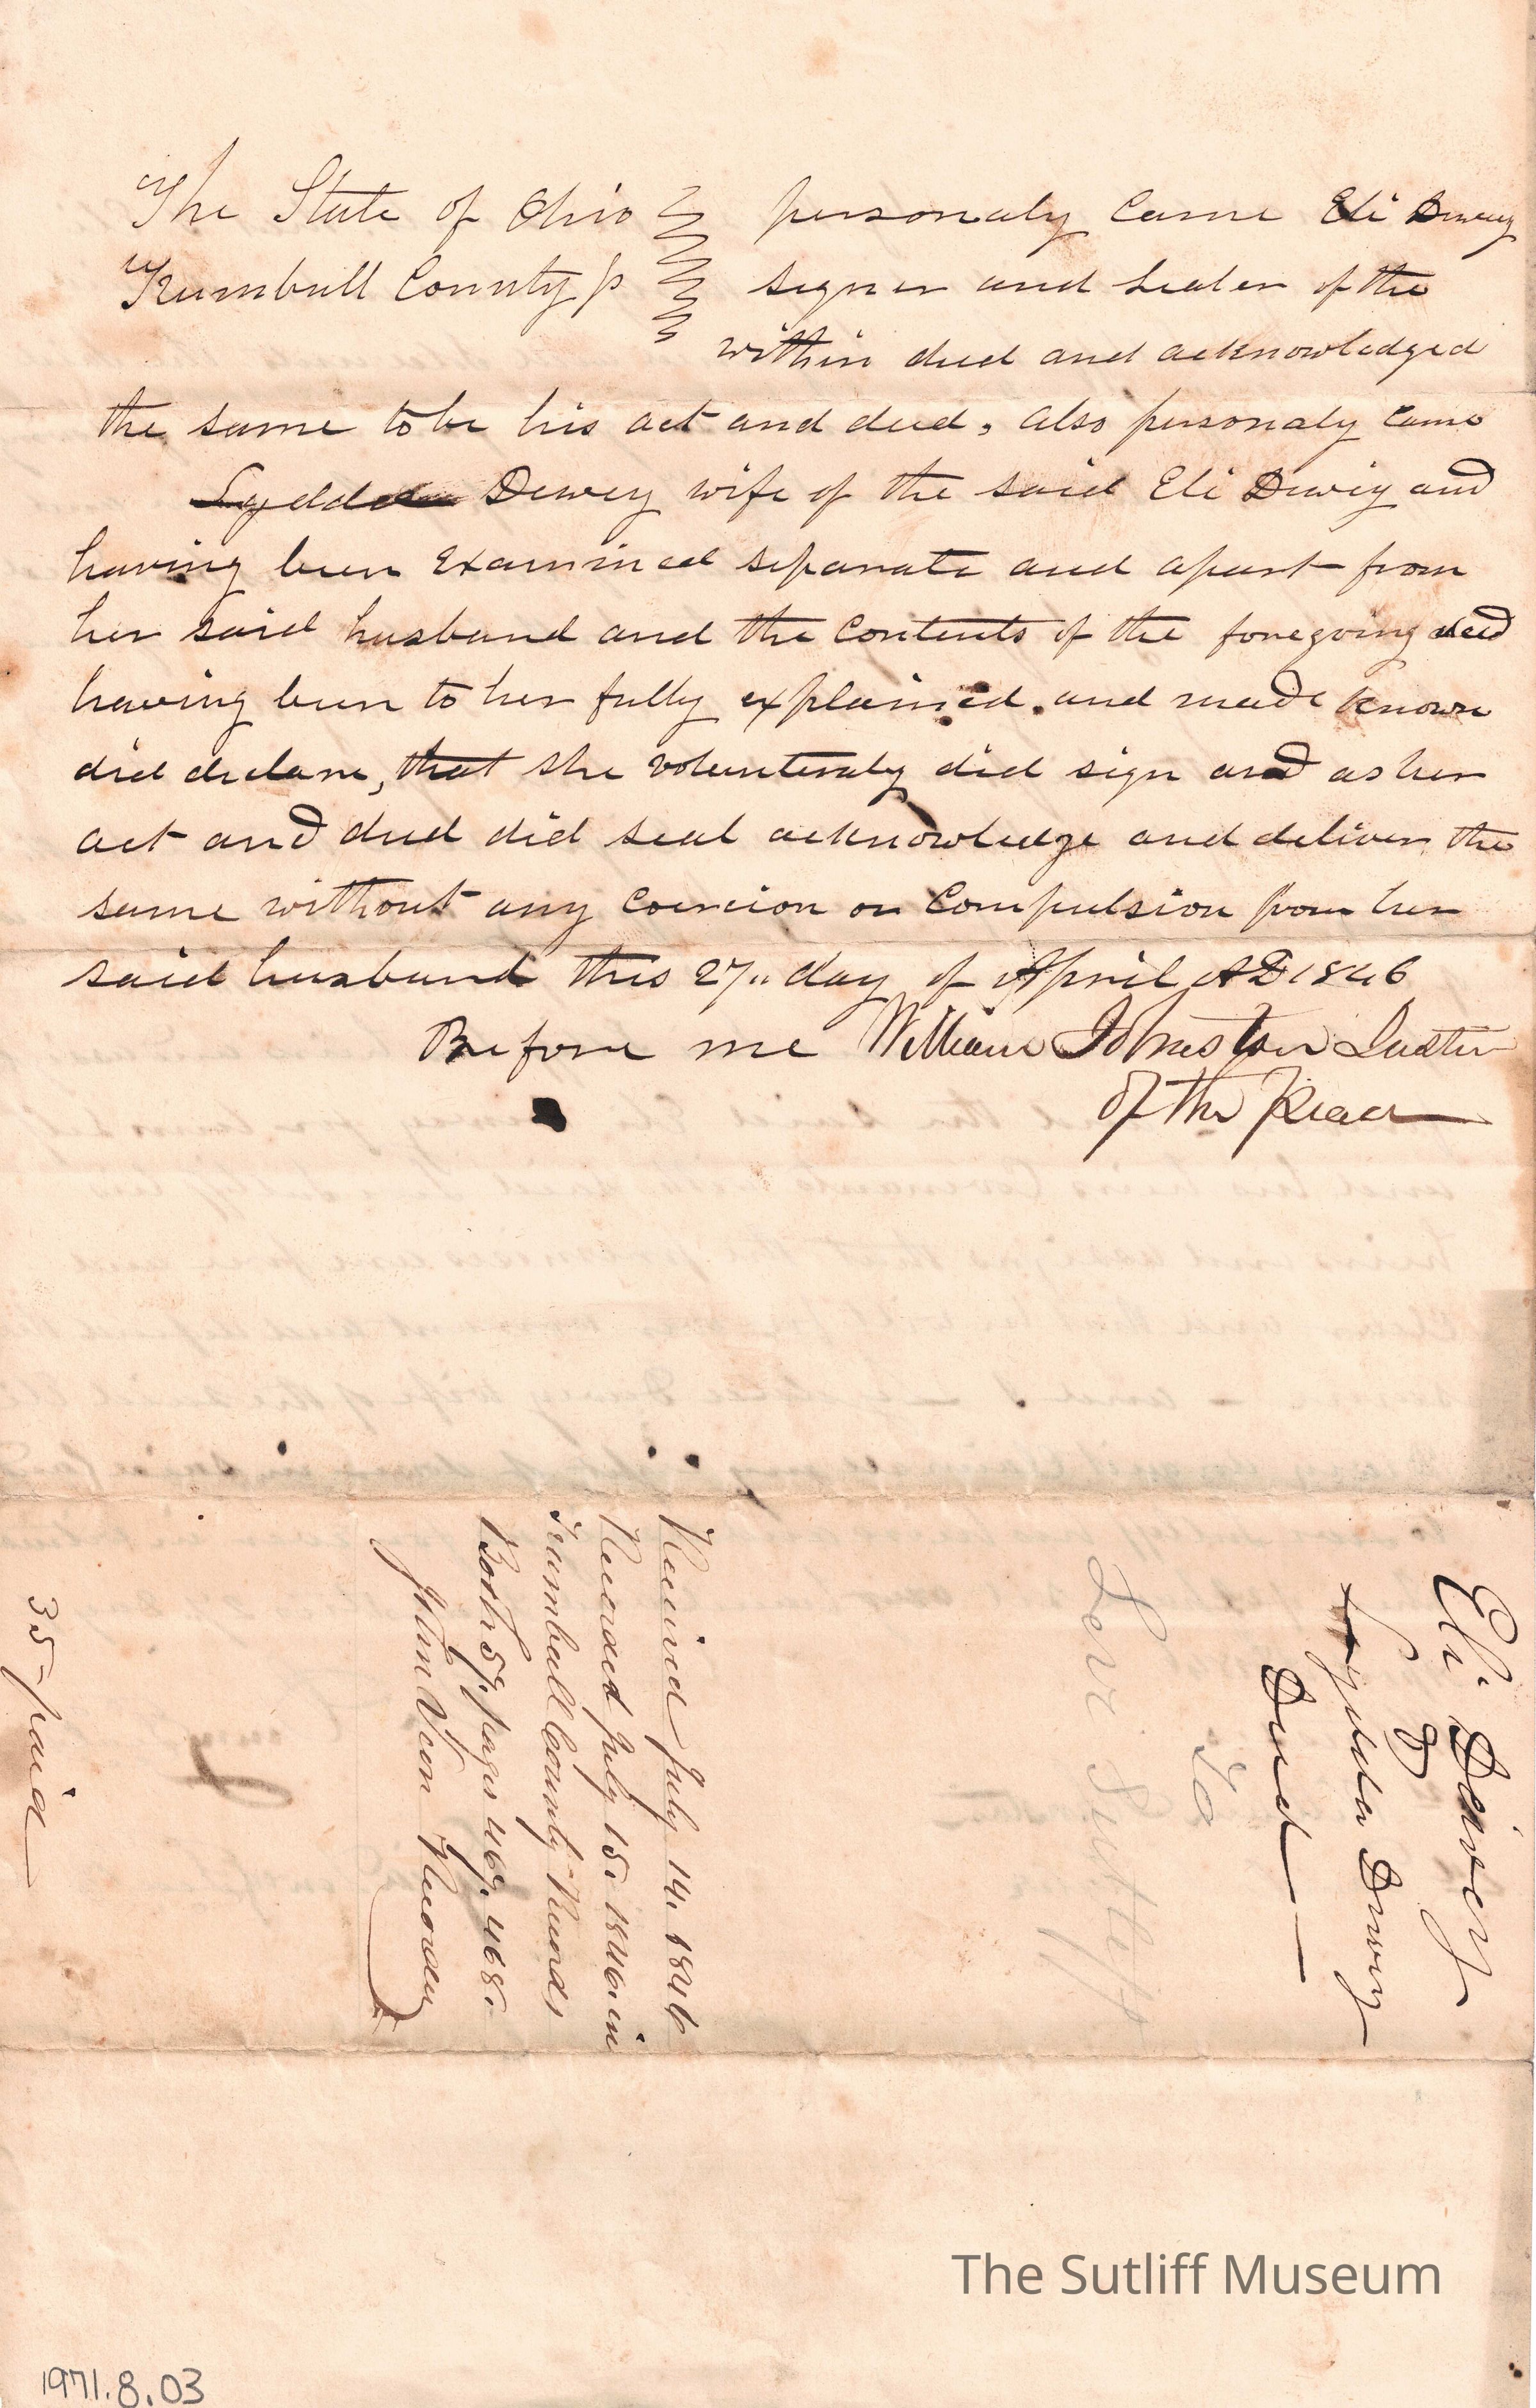 The State of Ohio personaly came Eli Dewey
Trumbull County ss signer and sealer of the
within deed and acknowledged
the same to be his act and deed, also personaly came
Lydda Dewey wife of the said Eli Dewey and
having been Examined separate and apart from
her said husband and the Contents of the foregoing deed
having been to her fully explained. and made known
did declare, that she volunteraly did sign and as her
act and deed did seal acknowledge and deliver the
same without any Coercion or Compulsion from her
said husband this 27,, day of April AD 1846
Before me William Johnston Justice
of the Peace
Eli Dewey
&
Lydda Dewey
Deed
To
Levi Sutliff
Received July 14. 1846
Recorded July 15. 1846. in
Trumbull County Records
Book 59. pages 467. 468.
John Veon Recorder
35 paid
The Sutliff Museum
1971.8.03